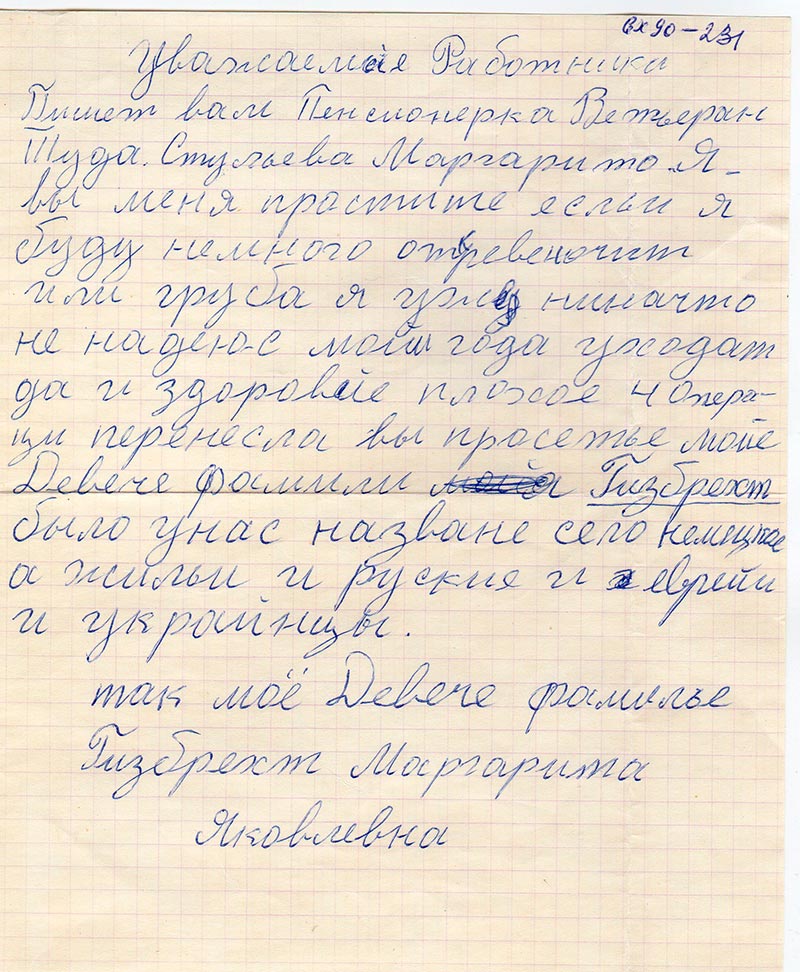 вх90-231
Уважаемые Работники
Пишет вам Пенсионерка Ветьеран
Туда. Стульева Маргарито Я-
вы меня прастите есльи я
буду немного
или груба я уже ниначто
не надеюс мои года уходат
да и здоровие плохое 4 Опера-
ци перенесла вы прасетье мойе
Девече фамили Гизбрехт
было унас назване село немецкое
а жильи и руские и еврейи
и украйнцы.
так моё Девече фамилье
Гизбрехт Маргарита
Яковлевна